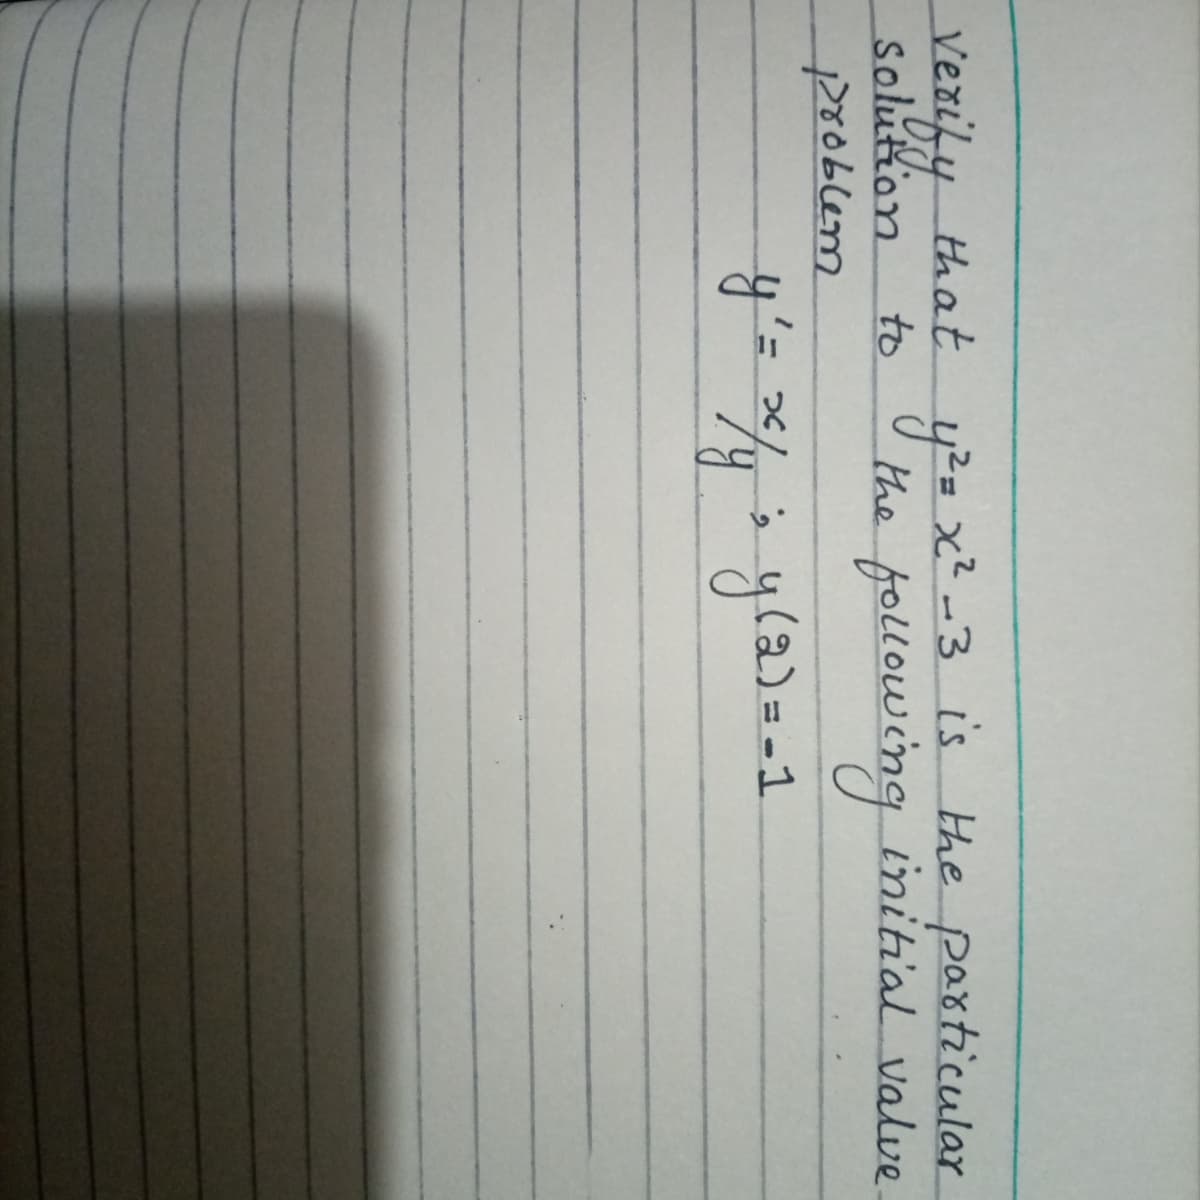 verify that y² = x² - 3 is the particular
solution to the following initial value
problem
y' = x/y ; y(2) = -1